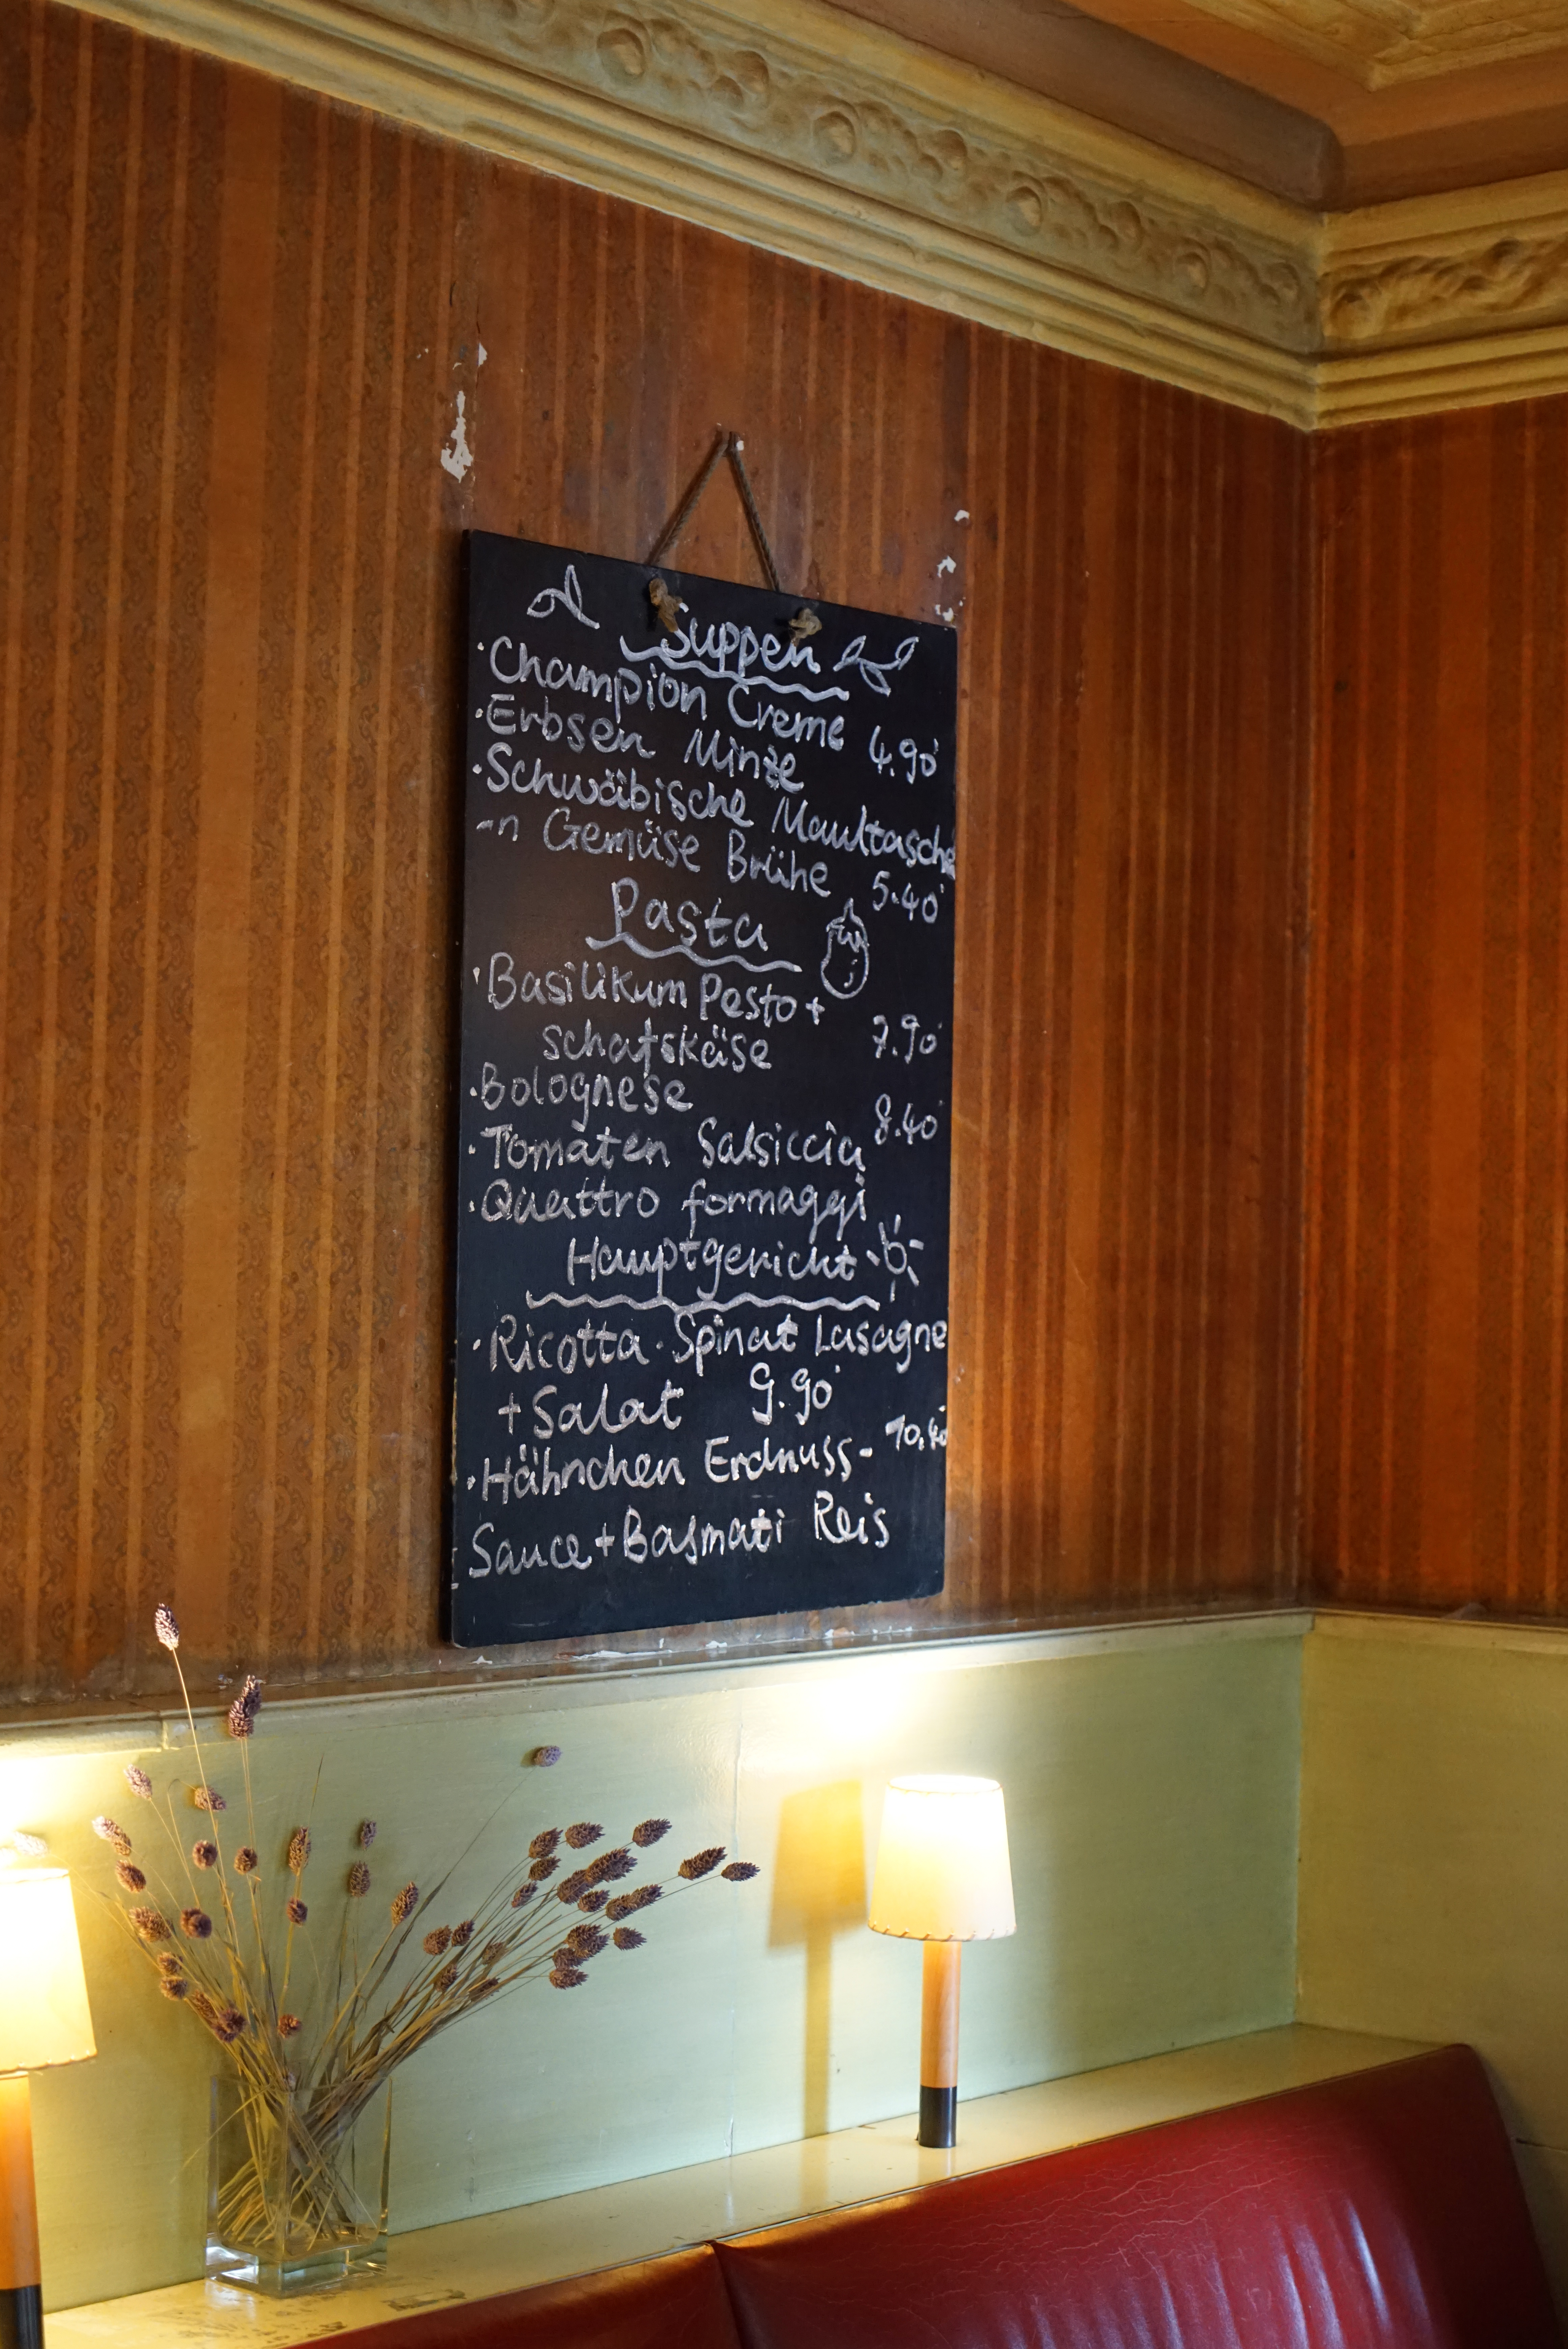 Suppen
· Champion Creme
· Erbsen Minze 4.90
· Schwäbische Maultasche
-n Gemüse Brühe 5.40
Pasta
· Basilikum Pesto +
Schafskäse 7.90
· Bolognese
8.40
· Tomaten Salsiccia
· Quattro formaggi
Hauptgericht
· Ricotta · Spinat Lasagne
+ Salat 9.90
· Hähnchen Erdnuss- 10.40
Sauce + Basmati Reis